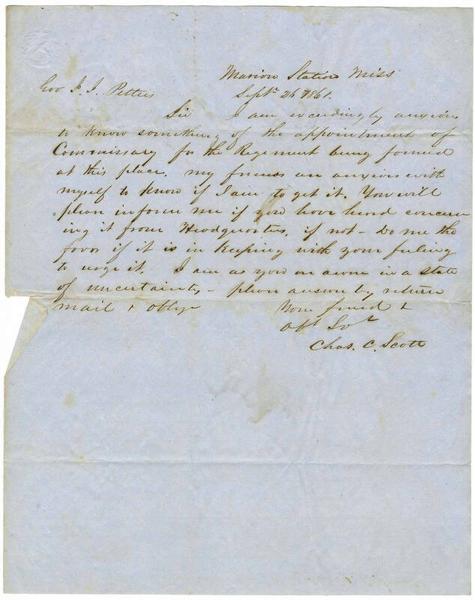 Marion Station Miss
Sept. 26 1861.
Gov J. J. Pettus
Sir I am exceedingly anxious
to know something of the appointment of
Commissary for the Regement being formed
at this place. my friends are anxious with
myself to know if I am to get it. You will
pleas inform me if you have heard concern
ing it from Headquarters, if not - Do me the
favor if it is in keeping with your feeling
to urge it. I am as you are aware in a state
of uncertainty - pleas answer by return
mail & oblige
Your friend &
Obt Svt
Chas. C. Scott